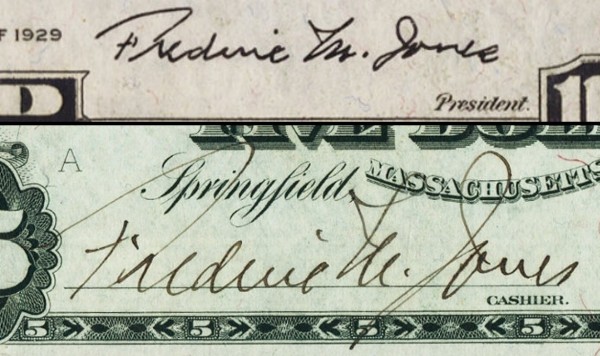 F 1929
Frederic M. Jones
President.
FIVE DOL
A
Springfield, MASSACHUSETTS
Frederic M. Jones
CASHIER.
5 5 5 5